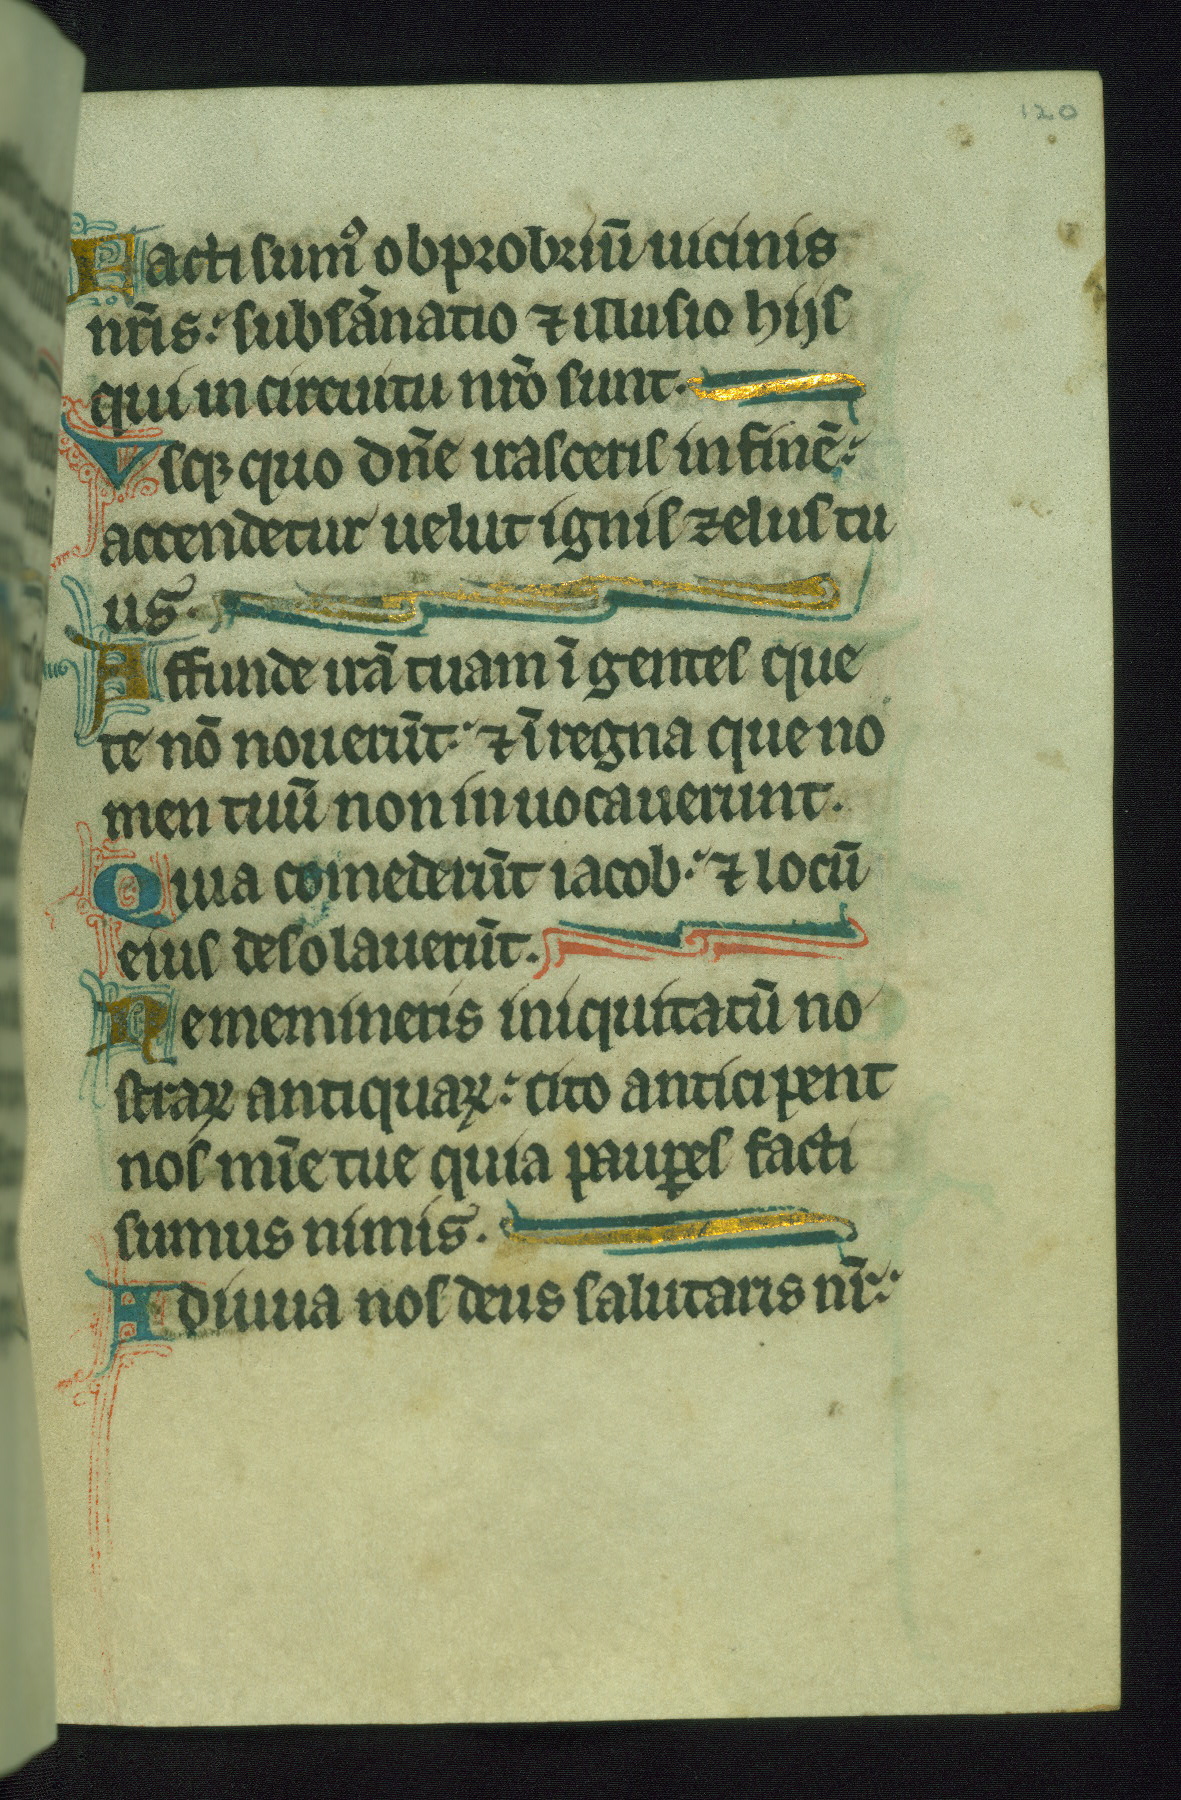 120
Facti sumꝰ obprobriū uicinis
nr̄is: subsānatio ⁊ illusio hijs
qui in circuitu nr̄o sunt.
Vsqꝫ quo dn̄e irasceris in finē:
accendetur uelut ignis zelus tu
us.
Effunde irā tuam ī gentes que
te nō nouerūt: ⁊ ī regna que no
men tuū non inuocauerunt.
Quia comederūt iacob: ⁊ locū
eius desolauerūt.
Ne memineris iniquitatū no
straꝝ antiquaꝝ: cito anticipent
nos mīe tue quia pauꝑes facti
sumus nimis.
Adiuua nos deus salutaris nr̄: